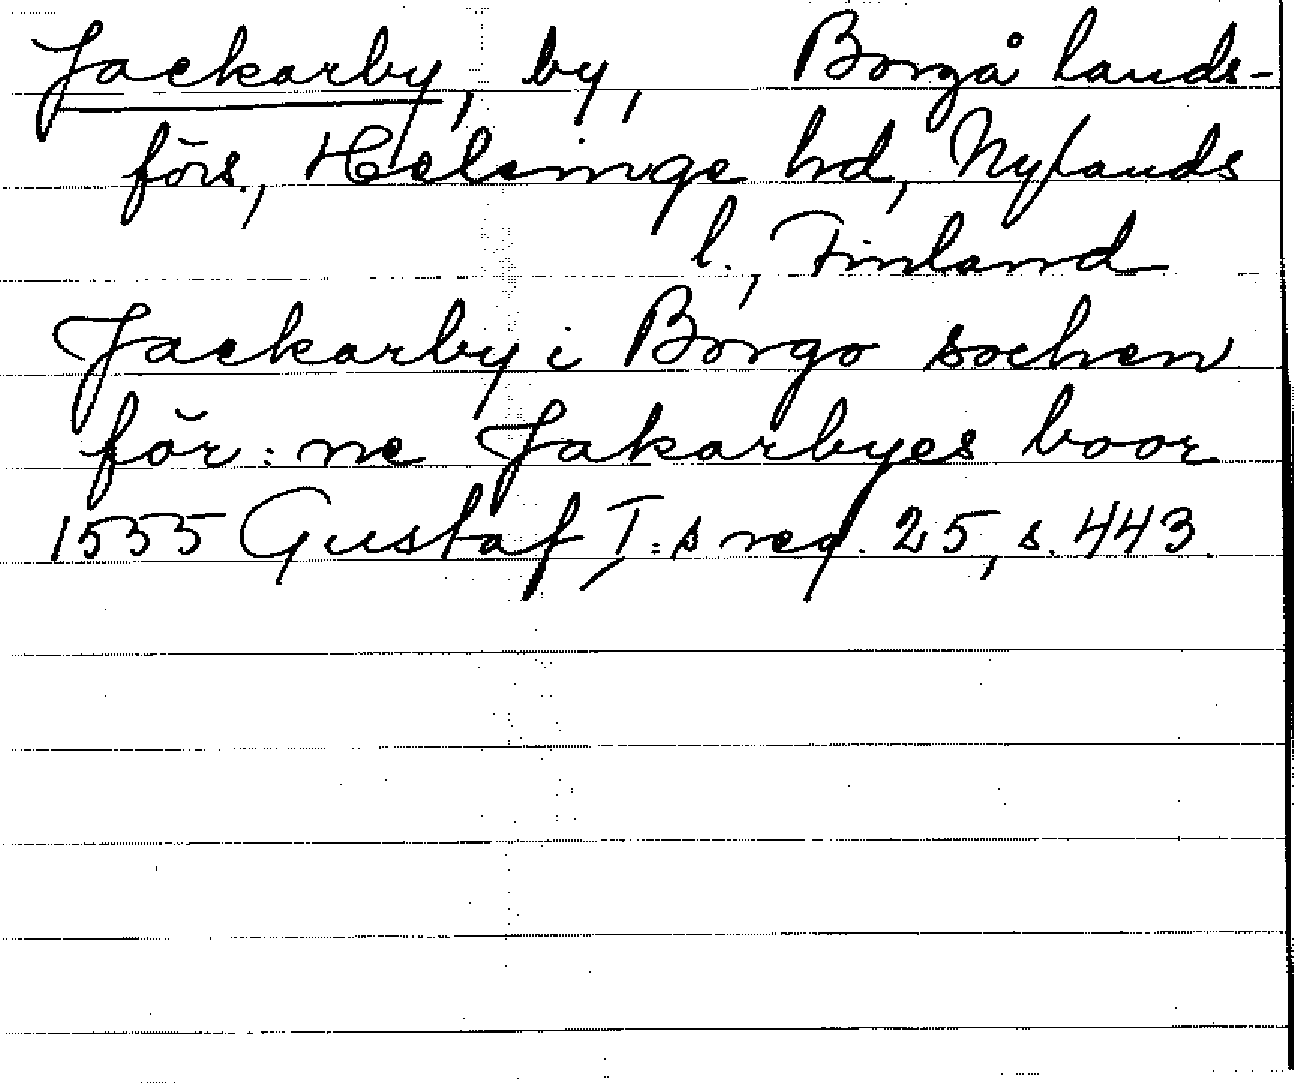 Jackarby, by, Borgå lands-
förs., Helsinge hd, Nylands
l., Finland
Jackarby i Borgo sochen
för:ne Jakarbyes boor
1555 Gustaf I:s reg. 25, s. 443.